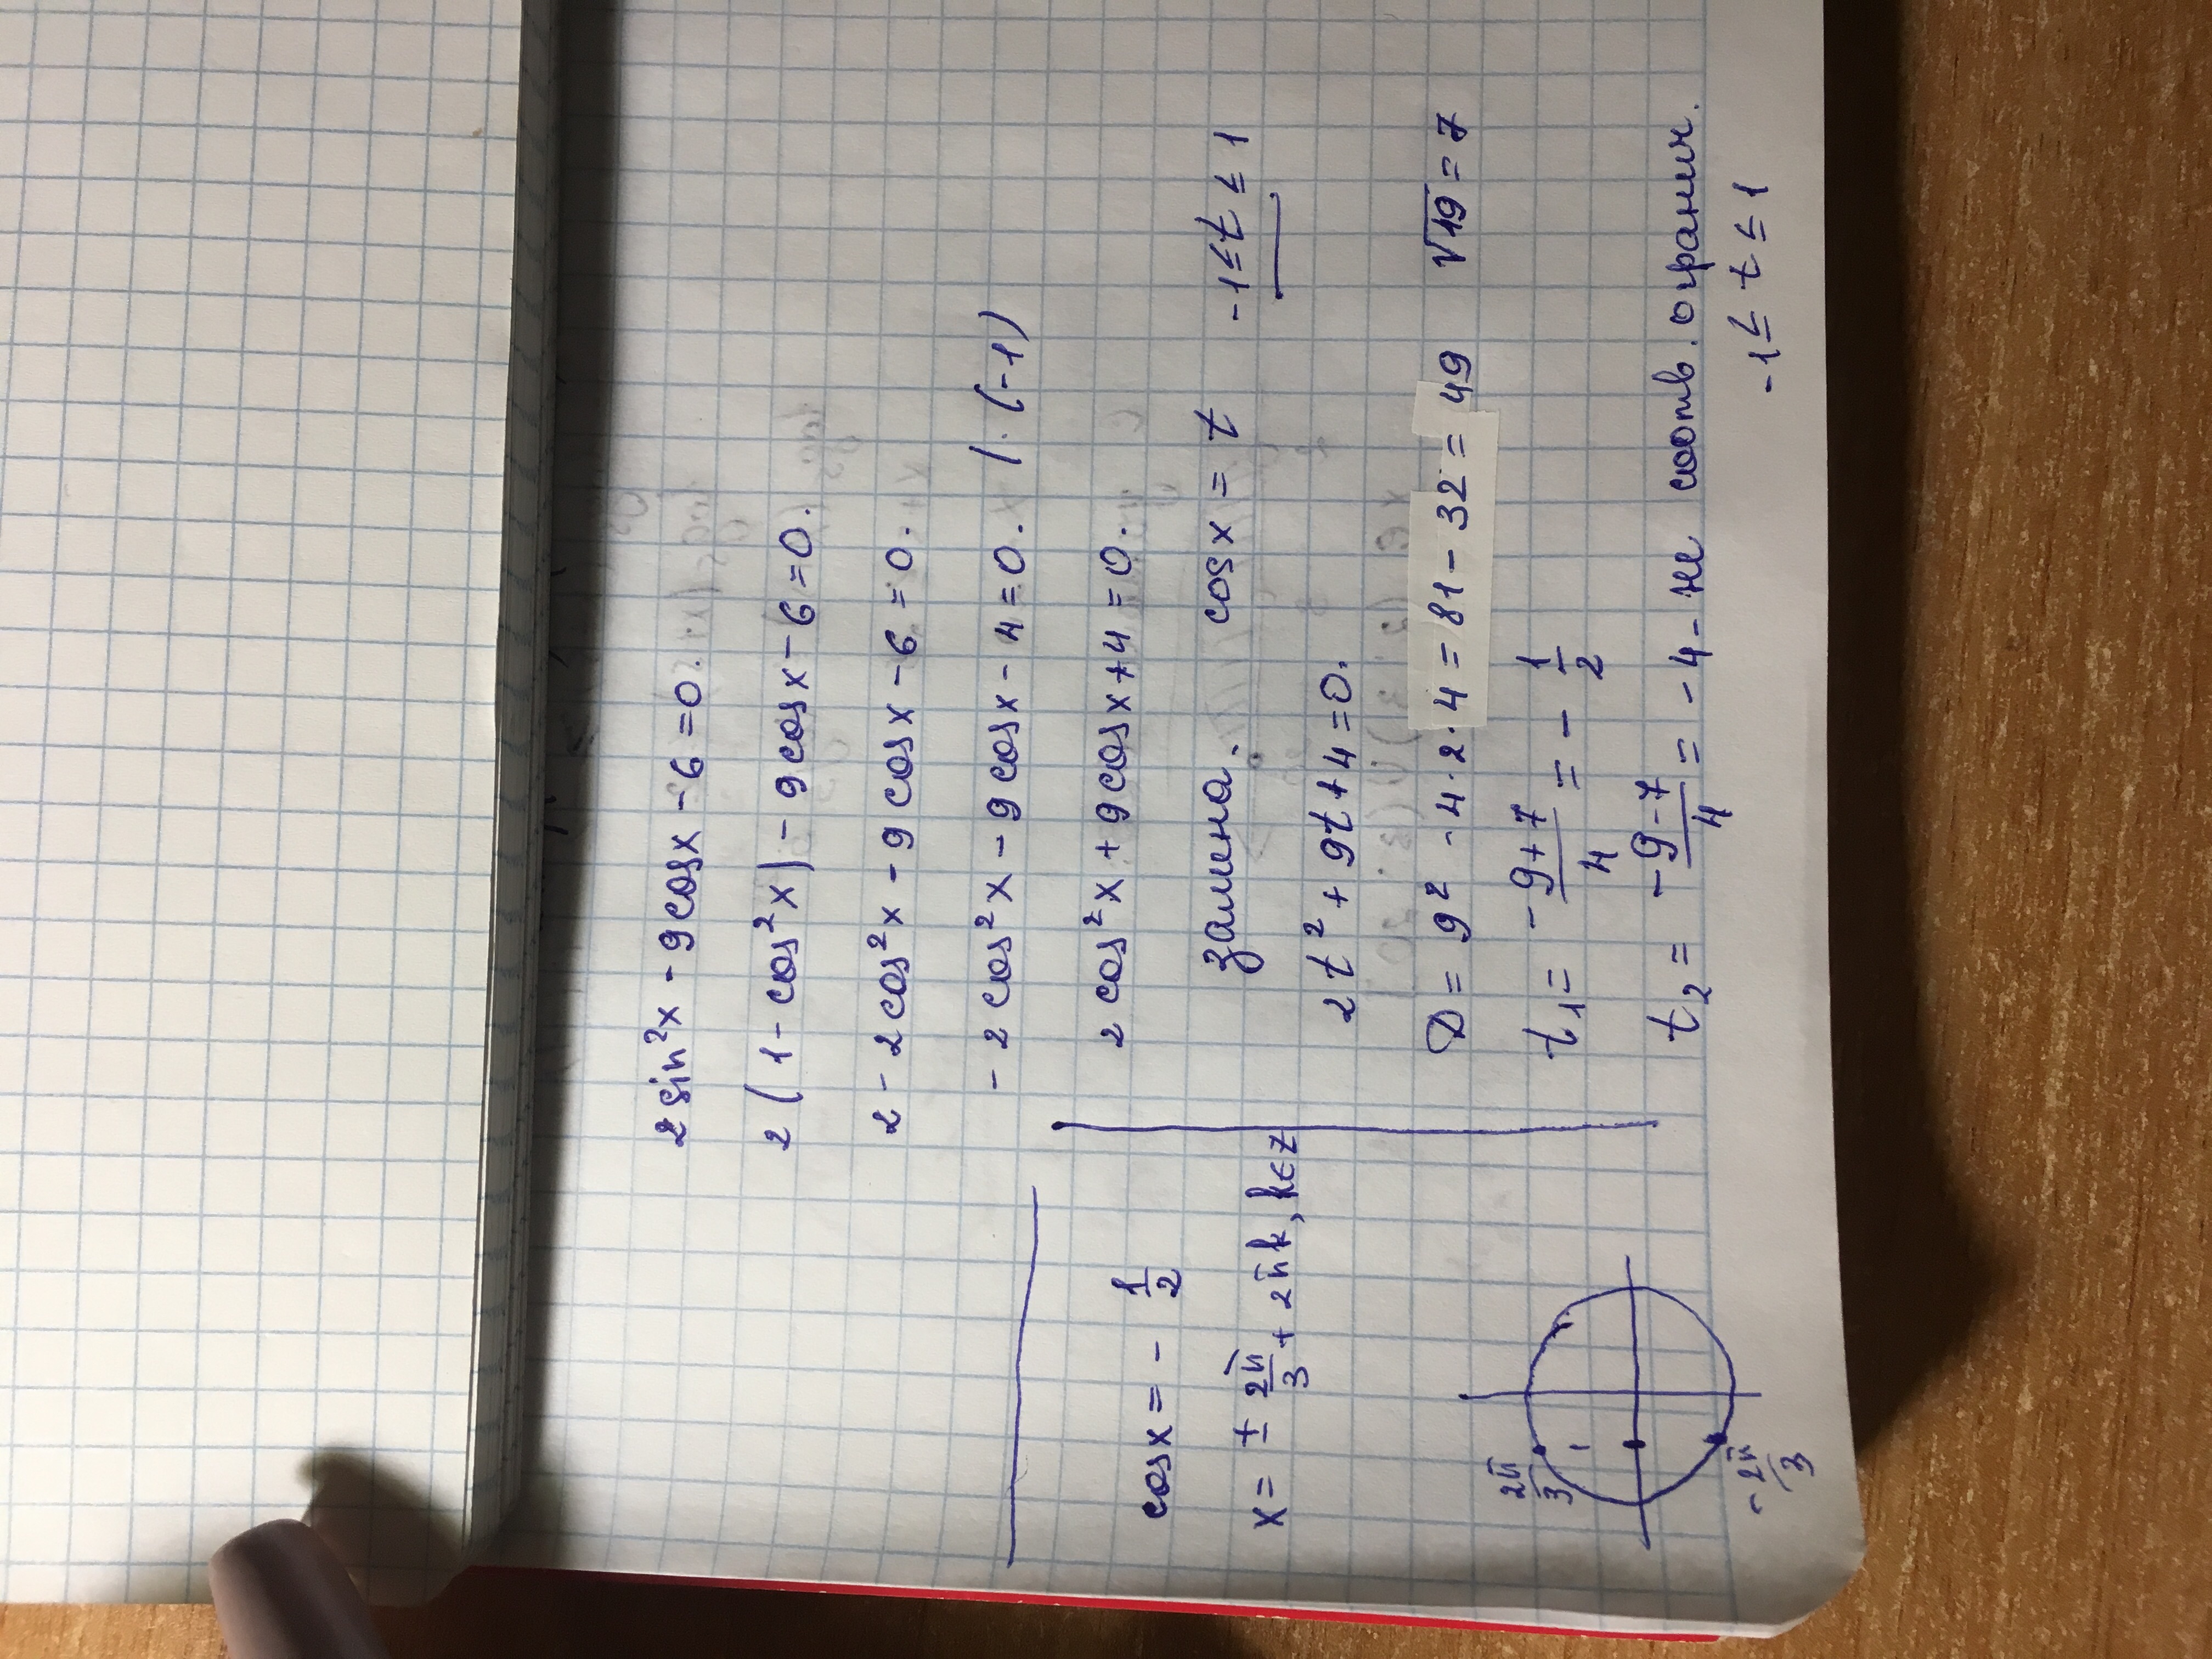 2 sin²x - 9cosx - 6 = 0.
2(1 - cos²x) - 9cosx - 6 = 0.
2 - 2cos²x - 9cosx - 6 = 0.
- 2cos²x - 9cosx - 4 = 0. | · (-1)
2cos²x + 9cosx + 4 = 0.
замена. cosx = t -1 ≤ t ≤ 1
2t² + 9t + 4 = 0.
D = 9² - 4 · 2 · 4 = 81 - 32 = 49 √49 = 7
t₁ = (-9+7)/4 = - 1/2
t₂ = (-9-7)/4 = - 4 - не соотв. огранич.
-1 ≤ t ≤ 1
cosx = - 1/2
x = ± 2π/3 + 2πk, k∈z
2π/3
- 2π/3